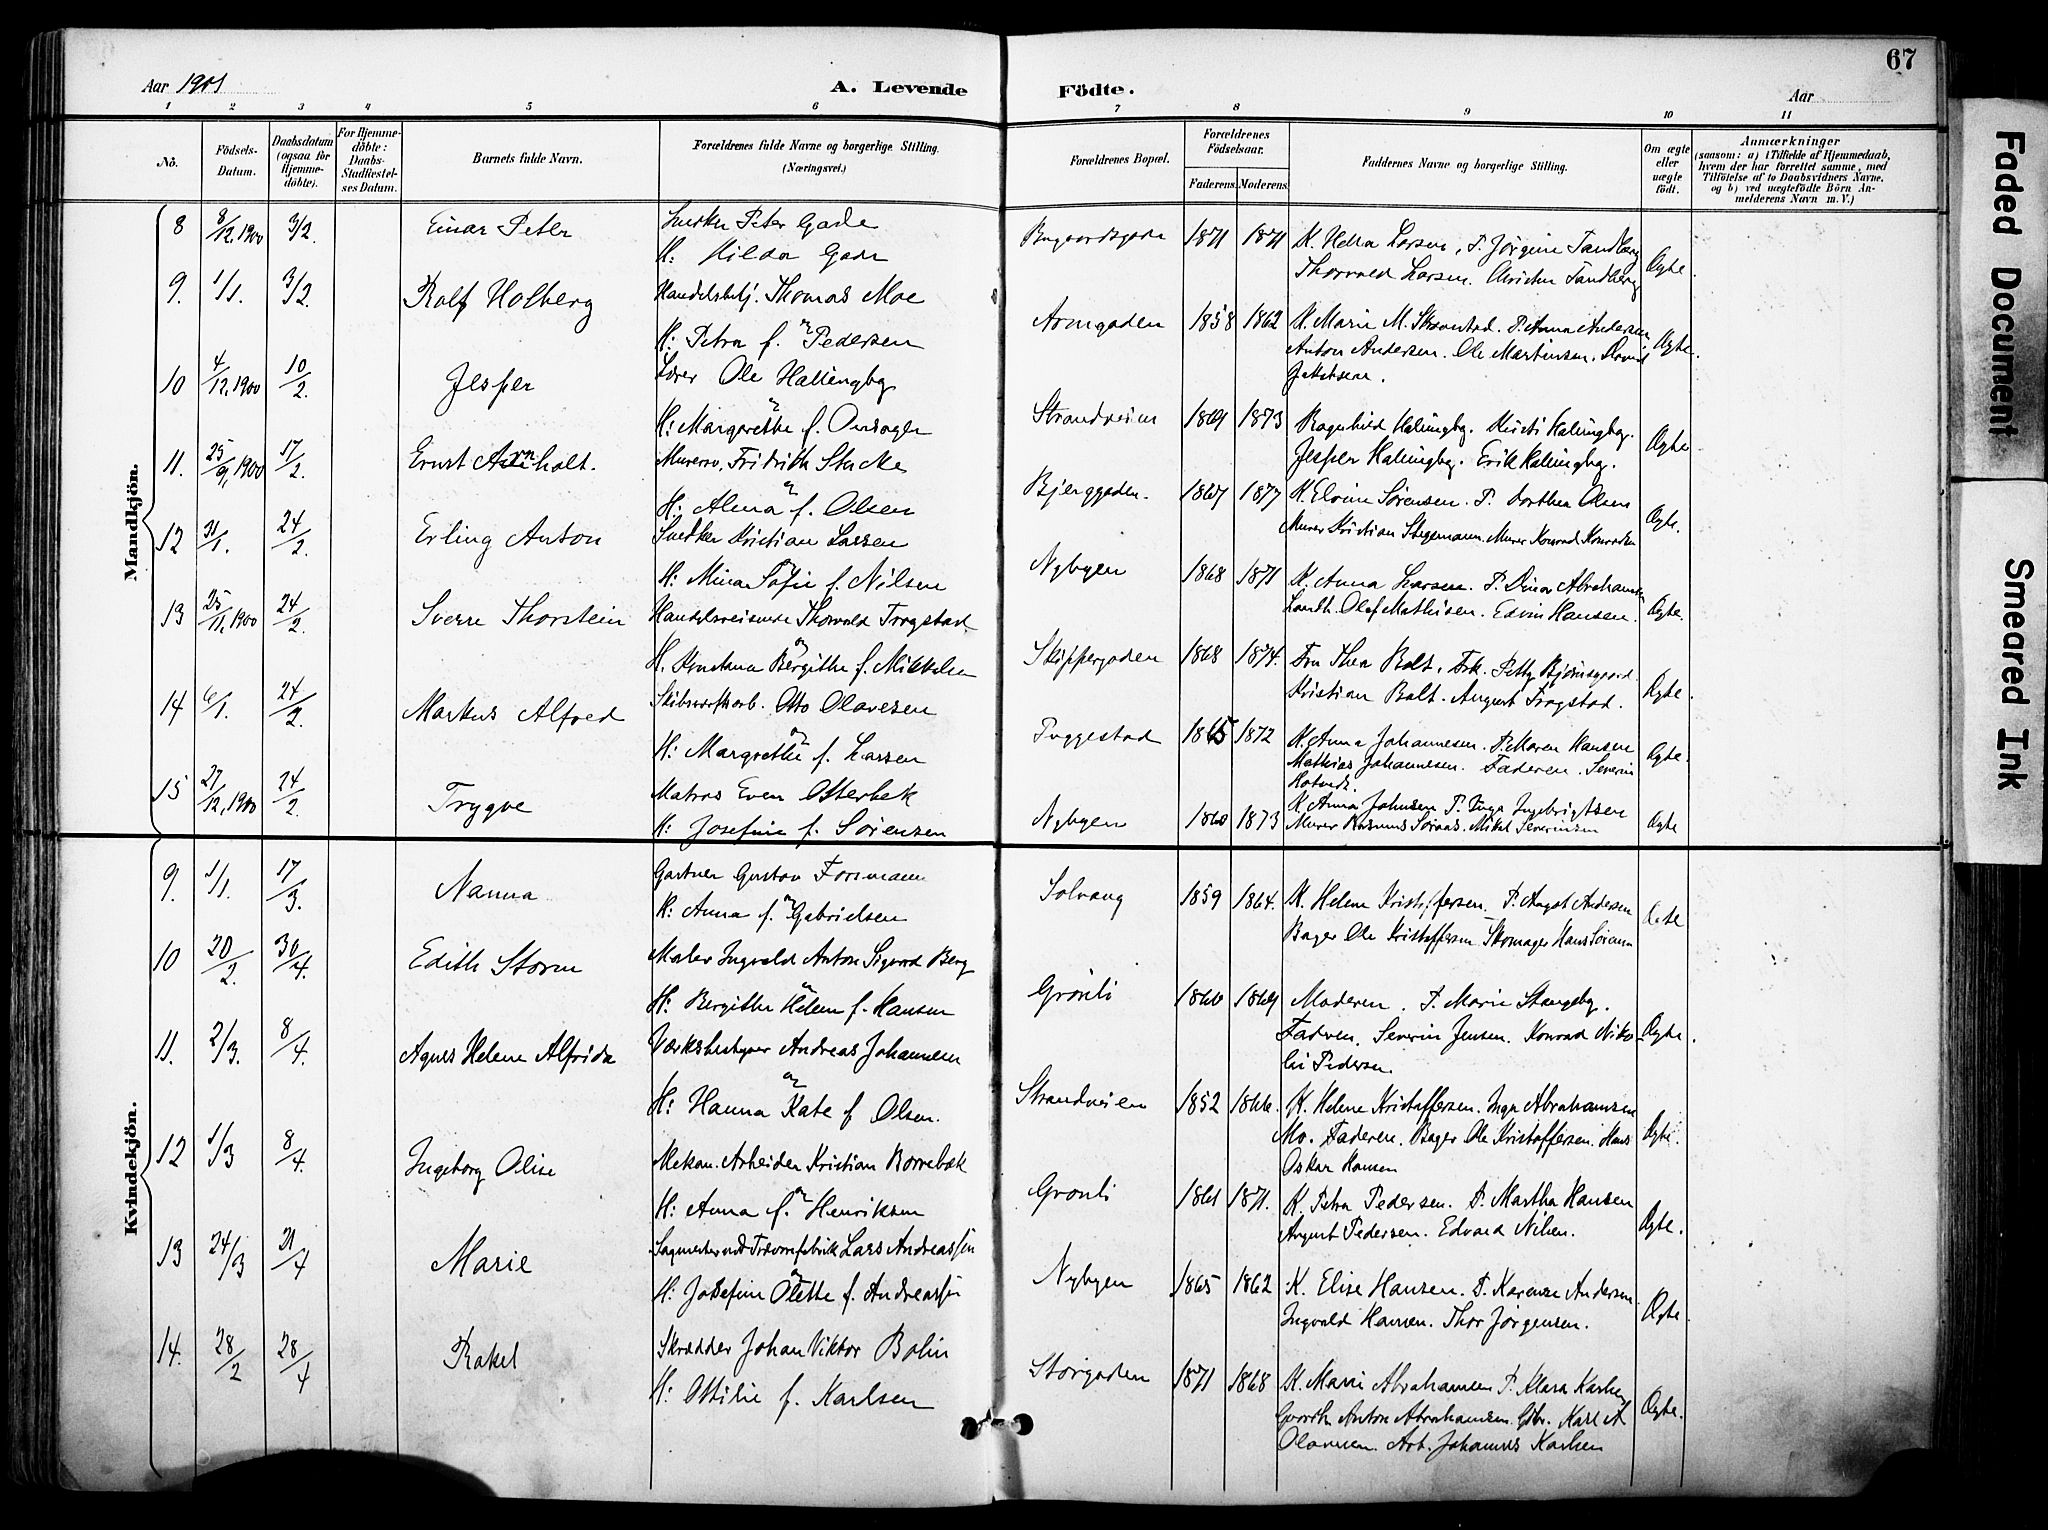 67
Aar 1901
A. Levende Födte.
Aar
1 2 3 4 5 6 7 8 9 10 11
No.
Födsels-Datum.
Daabsdatum (ogsaa for Hjemme-döbte).
For Hjemme-döbte: Daabs-Stadfestel-ses Datum.
Barnets fulde Navn.
Forældrenes fulde Navne og borgerlige Stilling. (Næringsvei.)
Forældrenes Bopæl.
Forældrenes Födselsaar.
Faderens. Moderens.
Faddernes Navne og borgerlige Stilling.
Om ægte eller uægte födt.
Anmærkninger
(saasom: a) i Tilfælde af Hjemmedaab, hvem der har forrettet samme, med Tilföielse af to Daabsvidners Navne, og b) ved uægtefödte Börn An-melderens Navn m. V.)
Mandkjön.
8 8/12.1900 3/2. Einar Peter Snedker Peter Gade
H: Hilda Gade
1871 1871 K. Helra Larsen, P. Jørgine Sandberg
Thorvald Larsen. Sandberg Ægte.
9. 1/1. 3/2 Rolf Holberg Handelsbetj. Thomas Moe
H: Petra f. Pedersen
Armgaden 1858 1862 K. Marie M. P. Anna Andersen
Anton Andersen. Ole Martinsen. Ægte.
Jakobsen.
10 4/12.1900 10/2. Jesper Lærer Ole Hallingby
H: Margrethe f. Onsager
Strandveien 1869 1873 Ragnhild Hallingby. Kirsti Hallingby.
Jesper Hallingby. Erik Hallingby. Ægte
11. 25/9.1900 17/2. Ernst Arnholt. Murersv. Fridrich Stucke
H: Alma f. Olsen
Bjerggaden. 1867 1877 K. Elvine Sørensen. P. Dorthea Olsen
Murer Kristian Stegemann. Murer Konrad Konradsen Ægte.
12 31/1. 24/2. Erling Anton Snedker Kristian Larsen
H: Mina Sofie f. Nilsen
Nybyen 1868 1871 K. Anna Larsen. P. Dina Abrahamsen
Landh. Olaf Mathisen. Edvin Hansen. Ægte.
13 25/11.1900 24/2. Sverre Thorstein Handelsreisende Thorvald Trogstad
H. Konstanse Bergithe f. Mikkelsen
Skippergaden 1868 1874. Fru Thea Bolt. Frk. Petty Bjørnsgaard.
Kristian Bolt. August Trogstad. Ægte.
14 6/1. 24/2. Markus Alfred Skibsværftsarb. Otto Olavesen
H: Margrethe f. Larsen
Tuggestad 1865 1872 K. Anna Johannesen. P. Maren Hansen
Mathias Johannesen. Faderen. Severin Ægte.
15 27/12.1900 24/2. Trygve Matros Even Otterbek
H: Josefine f. Sørensen
Nybyen 1860 1873 K. Anna Johnsen P. Inga Ingebrigtsen
Murer Rasmus Mikal Severinsen Ægte
Kvindekjön.
9. 1/1. 17/3. Nanna Gartner Gustav Forsmann
H: Anna f. Gabrielsen
Solvang 1859 1864. K. Helene Kristoffersen. P. Angst Andersen
Bager Ole Kristoffersen Skomager Hans Sørensen Ægte
10 20/2. 30/4. Edith Storm Maler Ingvald Anton Sigvard Berg
H: Bergithe Helene f. Hansen
Grønli 1866 1869 Moderen. P. Marie Stangeby.
Faderen. Severin Jensen. Konrad Niko-
lai Pedersen. Ægte.
11. 2/3. 8/4. Agnes Helene Alfrida Værksbestyrer Andreas Johannesen
H: Hanna Kate f Olsen.
Strandveien 1852 1866. K. Helene Kristoffersen. Inga Abrahamsen
Mo. Faderen. Bager Ole Kristoffersen. Hans
Oskar Hansen Ægte.
12 1/3 8/4. Ingeborg Olise Mekan. Arbeider Kristian Borrebæk
H: Anna f. Henriksen
Grønli 1861 1871. K. Petra Pedersen. P. Martha Hansen
August Pedersen. Edvard Nilsen. Ægte.
13 24/3 21/4 Marie Sagmester ved Trævarefabrik Lars Andreassen
H: Josefine Olette f. Andreassen
Nybyen 1865 1862 K. Elise Hansen. P. Karense Andersen
Ingvald Hansen. Thor Jørgensen. Ægte.
14. 28/2 28/4 Rakel Skrædder Johan Viktor Bolin
H: Ottilie f. Karlsen
Storgaden 1871 1868 K. Marie Abrahamsen P. Klara Karlsen
Anton Abrahamsen. Gbr. Karl A
Olavesen. Arb. Johannes Karlsen Ægte.
Faded Document
Smeared Ink